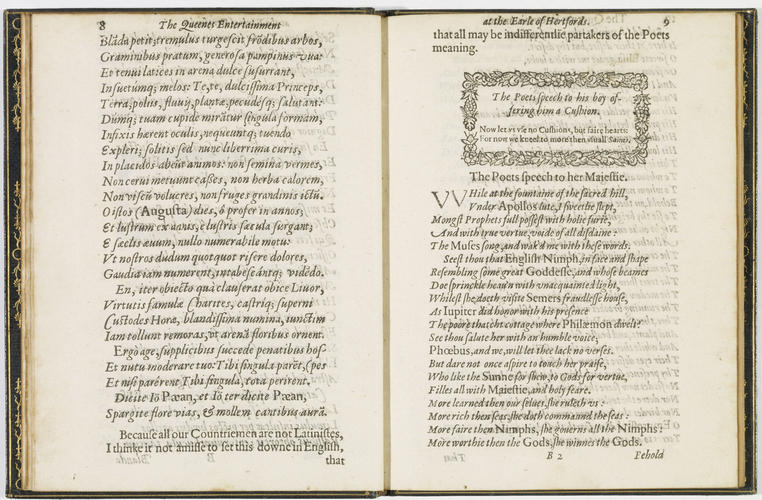 8 The Queenes Entertainment
Blãda petit; tremulus turgescit frõdibus arbos,
Graminibus pratum, generosa pampinus vua:
Et tenui latices in arena dulce susurrant,
Insuetumq; melos: Te, te, dulcissima Princeps,
Terra, polus, fluuij, plantæ, pecudésq; salutant:
Dúmq; tuam cupide mirãtur singula formam,
Infixis hærent oculis, nequeuntq; tuendo
Expleri; solitis sed nunc liberrima curis,
In placidos abeũt animos: non semina vermes,
Non cerui metuunt casses, non herba calorem,
Non viscũ volucres, non fruges grandinis ictũ.
O istos (Augusta) dies, ô profer in annos;
Et lustrum ex annis, è lustris sæcula surgant;
E sæclis æuum, nullo numerabile motu:
Vt nostros dudum quotquot risere dolores,
Gaudia iam numerent, intabescántq; vidẽdo.
En, iter obiecto quà clauserat obice Liuor,
Virtutis famulæ Charites, castriq; superni
Custodes Horæ, blandissima numina, iunctim
Iam tollunt remoras, vt arenã floribus ornent.
Ergo age, supplicibus succede penatibus hospes
Et nutu moderare tuo: Tibi singula parẽt,
Et nisi parerent Tibi singula, tota perirent.
Dicite Iô Pæan, et Iô ter dicite Pæan,
Spargite flore vias, & mollem cantibus aurã.
Because all our Countriemen are not Latinistes,
I thinke it not amisse to set this downe in English,
that
at the Earle of Hertfords. 9
that all may be indifferentlie partakers of the Poets
meaning.
The Poets speech to his boy of-
fering him a Cushion.
Now let vs vse no Cushions, but faire hearts:
For now we kneel to more then vsuall Saints.
The Poets speech to her Maiestie.
VVHile at the fountaine of the sacred hill,
Vnder Apollos lute, I sweetlie slept,
Mongst Prophets full possest with holie furie,
And with true vertue, voide of all disdaine:
The Muses song, and wak'd me with these words.
Seest thou that English Nimph, in face and shape
Resembling some great Goddesse, and whose beames
Doe sprinckle heau'n with vnacquainted light,
Whilest she doeth visite Semers fraudlesse house,
As Iupiter did honor with his presence
The poore thatcht cottage where Philæmon dwelt?
See thou salute her with an humble voice;
Phœbus, and we, will let thee lack no verses.
But dare not once aspire to touch her praise,
Who like the Sunne for shew, to Gods for vertue,
Filles all with Maiestie, and holy feare.
More learned then our selues, she ruleth vs:
More rich then seas, she doth commaund the seas:
More faire then Nimphs, she gouerns all the Nimphs:
More worthie then the Gods, she winnes the Gods.
B 2 Behold